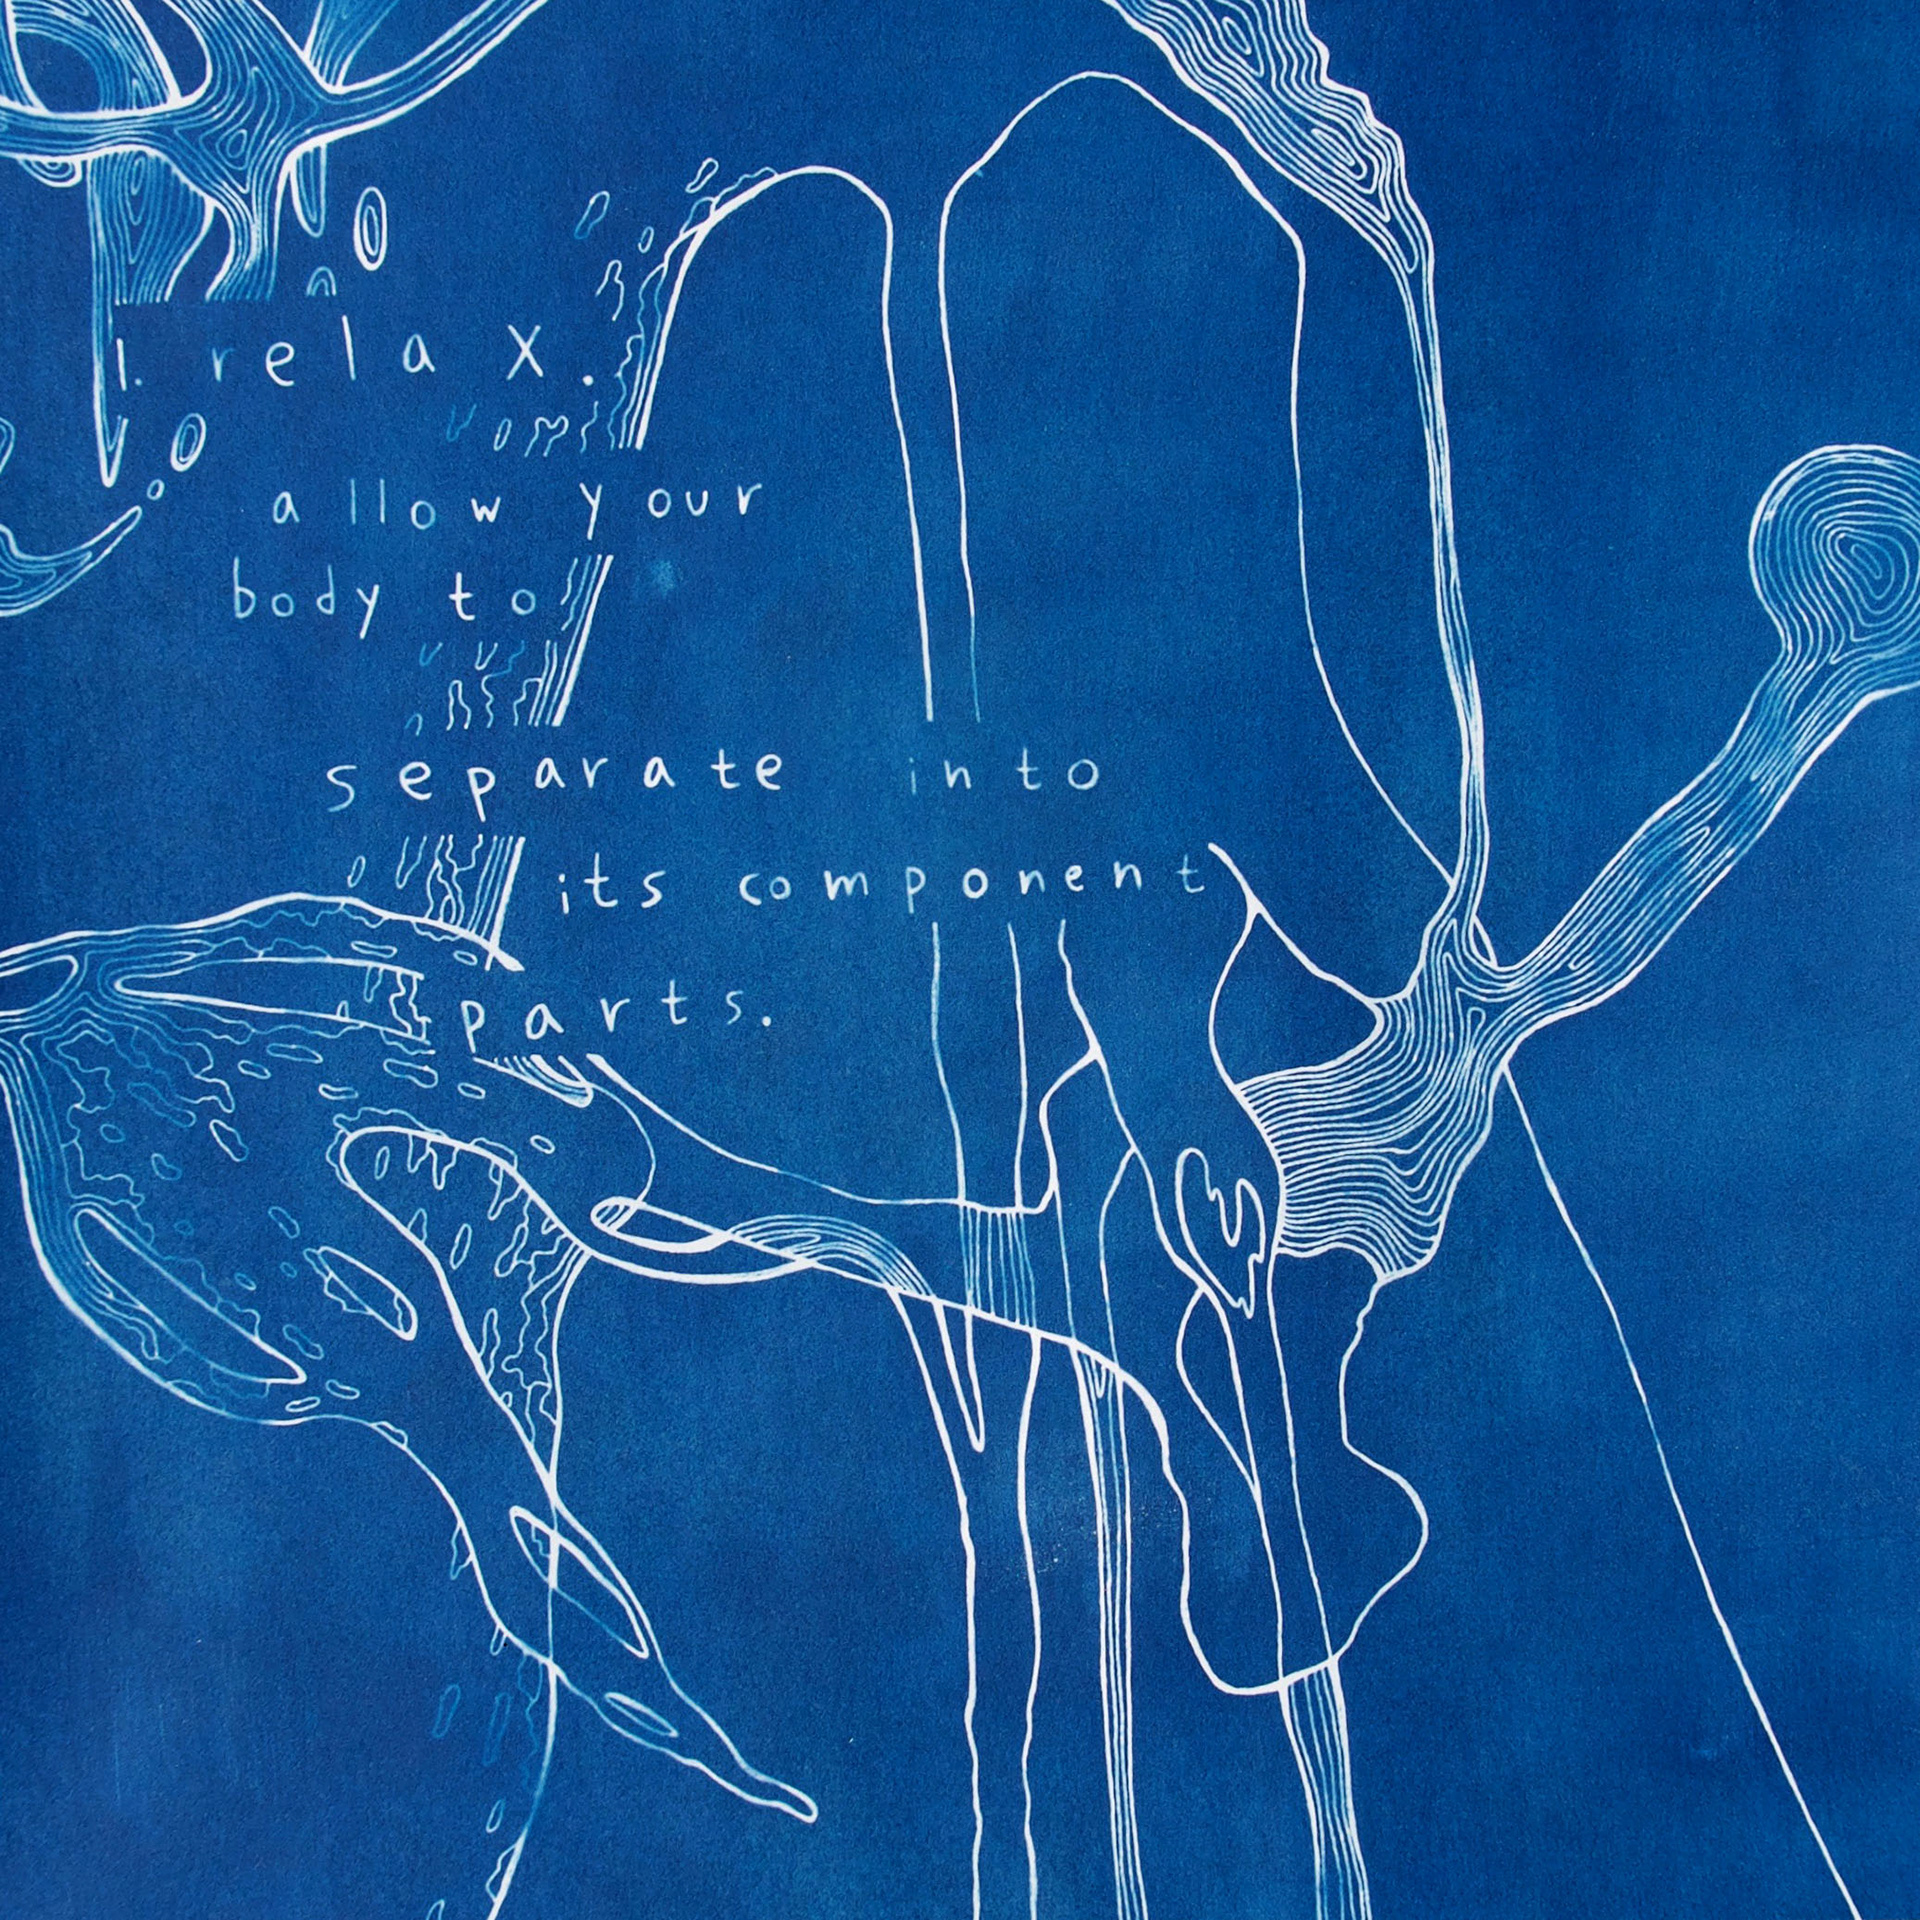 1. relax.
allow your
body to
separate into
its component
parts.